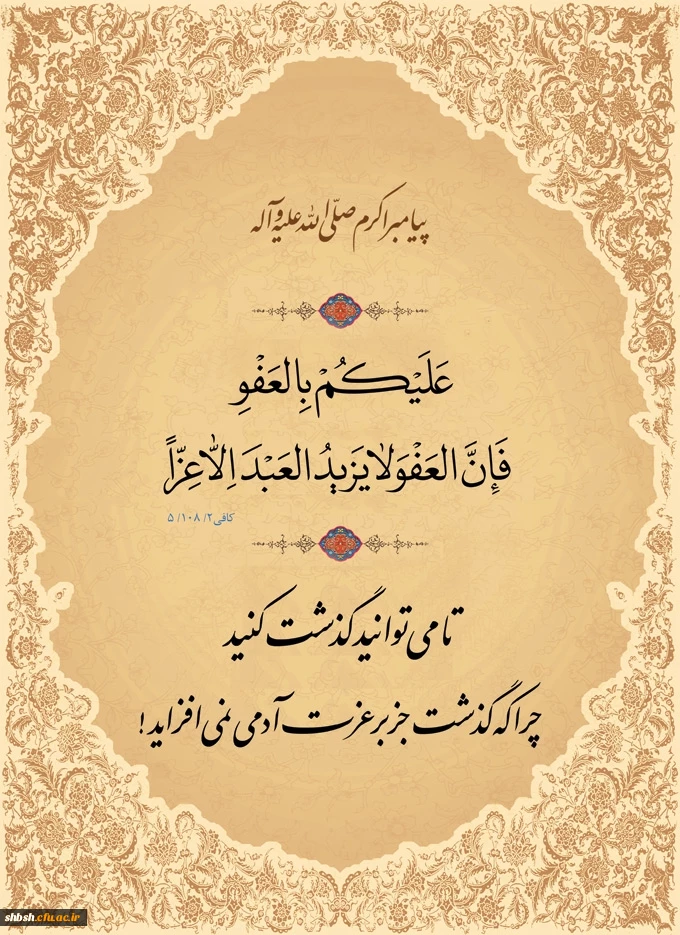 پیامبر اکرم صلّی الله علیه و آله
عَلَیْکُمْ بِالعَفْوِ
فَإِنَّ العَفْوَ لا یَزیدُ العَبْدَ اِلّا عِزّاً
کافی ۲/ ۱۰۸/ ۵
تا می توانید گذشت کنید
چرا که گذشت جز بر عزت آدمی نمی افزاید !
shbsh.cfu.ac.ir